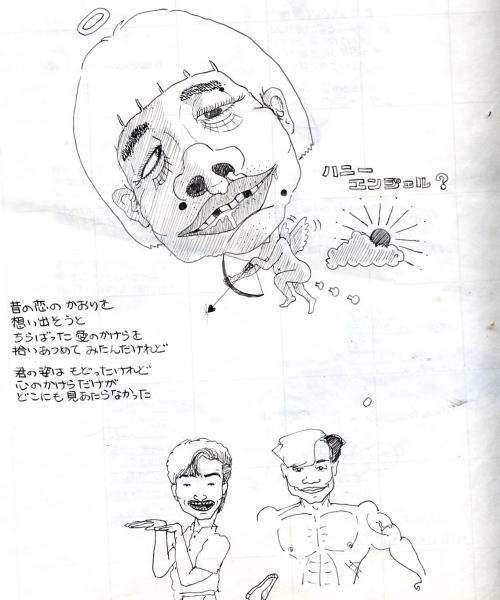 ハニー
エンジェル?
昔の恋の かおりを
想い出そうと
ちらばった 愛のかけらを
拾いあつめて みたんだけれど
君の姿は もどったけれど
心のかけらだけが
どこにも 見あたらなかった